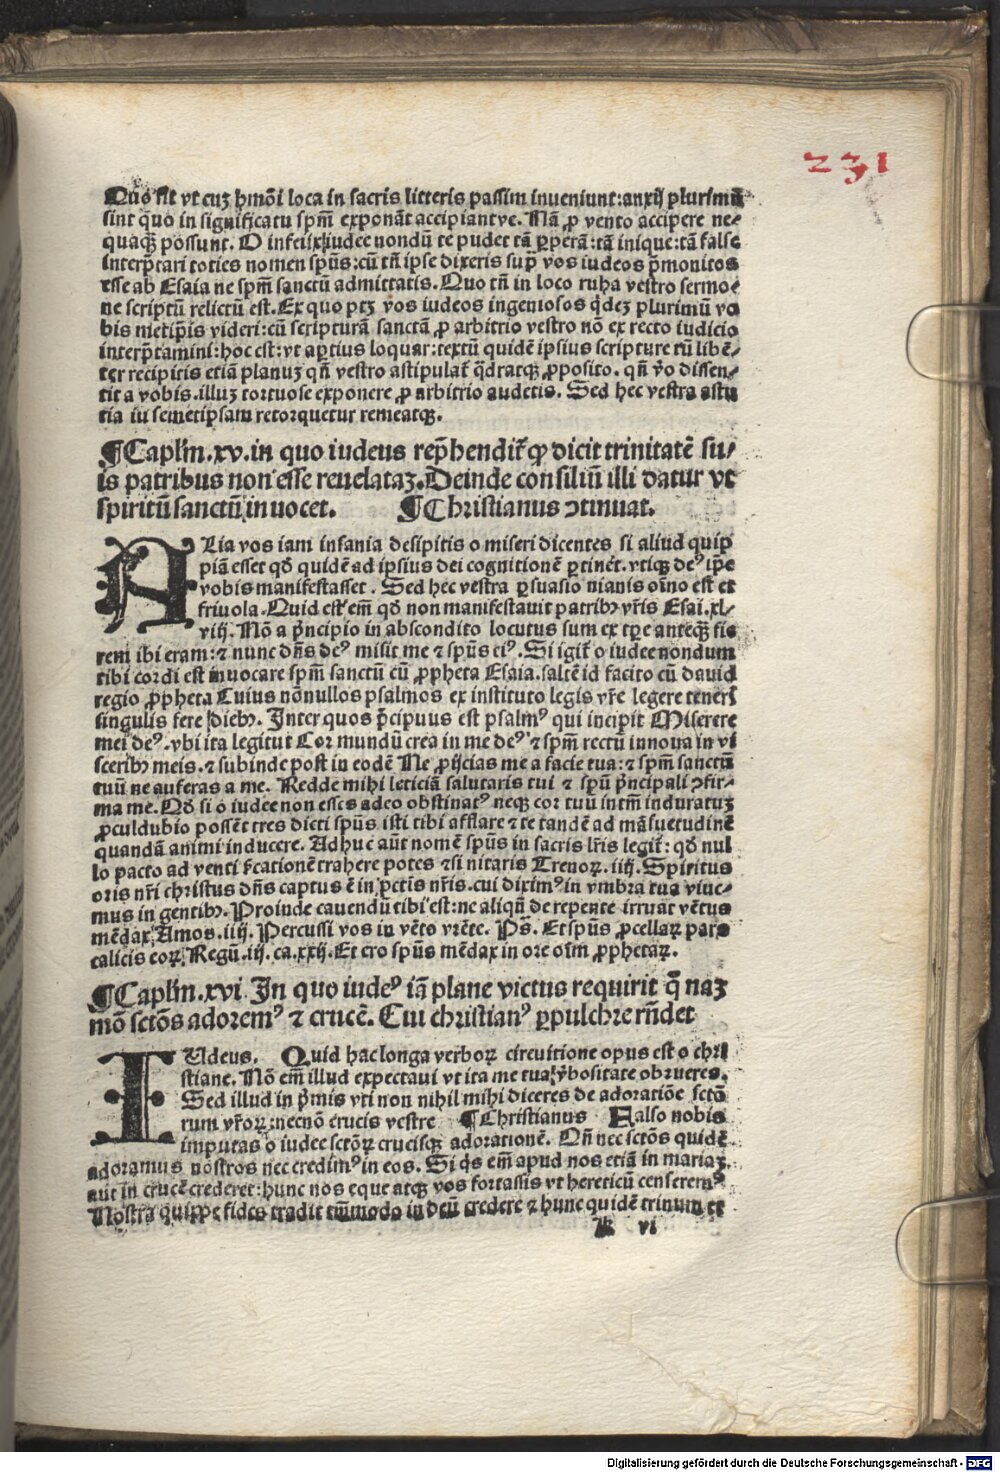 231
Quo fit vt cuz hmōi loca in sacris litteris passim inveniunt: anxij plurimū
sint quo in significatu spm̄ exponāt accipiantve. Nā ꝓ vento accipere ne⸗
quaqȝ possunt. O infelix iudee nondū te pudet tā ꝑperā: tā inique: tā false
interp̄tari toties nomen spūs: cū tn̄ ipse dixeris sup̄ vos iudeos p̄monitos
esse ab Esaia ne spm̄ sanctū admittatis. Quo tn̄ in loco ruha vestro sermo⸗
ne scriptū relictū est. Ex quo ptȝ vos iudeos ingeniosos q̇deȝ plurimū vo
bis metip̄is videri: cū scripturā sanctā ꝓ arbitrio vestro nō ex recto iudicio
interp̄tamini: hoc est: vt aꝑtius loquar: textū quidē ipsius scripture tū libē⸗
ter recipitis etiā planuȝ qn̄ vestro astipulat᷑ q̇dratqȝ ꝓposito. qn̄ v̊o dissen⸗
tit a vobis. illuȝ tortuose exponere ꝓ arbitrio audetis. Sed hec vestra astu
tia in semetipsam retorquetur remeatqȝ.
¶Caplm̄.xv. in quo iudeus rep̄hendit᷑ ꝙ dicit trinitatē su⸗
is patribus non esse reuelataȝ. Deinde consiliū illi datur vt
spiritū sanctū inuocet. ¶Christianus ↄtinuat.
ALia vos iam insania desipitis o miseri dicentes si aliud quip
piā esset qd̄ quidē ad ipsius dei cognitionē ꝑtinet. vtiqȝ deꝰ ip̄e
vobis manifestasset. Sed hec vestra ꝑsuasio inanis oīno est et
friuola. Quid est em̄ qd̄ non manifestauit patribȝ vr̄is Esai. xl⸗
viij. Nō a p̄ncipio in abscondito locutus sum ex tp̄e anteqȝ fie
rem ibi eram: ⁊ nunc dn̄s deꝰ misit me ⁊ spūs eiꝰ. Si igit᷑ o iudee nondum
tibi cordi est inuocare spm̄ sanctū cū ꝓpheta Esaia. saltē id facito cū dauid
regio ꝓpheta Cuius nōnullos psalmos ex instituto legis vr̄e legere teneri
singulis fere diebȝ. Inter quos p̄cipuus est psalmꝰ qui incipit Miserere
mei deꝰ. vbi ita legitur Cor mundū crea in me deꝰ ⁊ spm̄ rectū innoua in vi
sceribȝ meis. ⁊ subinde post in eodē Ne ꝓijcias me a facie tua: ⁊ spm̄ sanctū
tuū ne auferas a me. Redde mihi leticiā salutaris tui ⁊ spū p̄ncipali ↄfir⸗
ma me. Qd̄ si o iudee non esses adeo obstinatꝰ neqȝ cor tuū intm̄ induratuȝ
ꝓculdubio possēt tres dicti spūs isti tibi afflare ⁊ te tandē ad māsuetudinē
quandā animi inducere. Adhuc aūt nomē spūs in sacris lr̄is legit᷑: qd̄ nul
lo pacto ad venti s̄catiōnē trahere potes ⁊si nitaris Trenoꝝ. iiij. Spiritus
oris nr̄i christus dn̄s captus ē in pctīs nr̄is. cui diximꝰ in vmbra tua viue⸗
mus in gentibȝ. Proinde cauendū tibi est: ne aliqn̄ de repente irruat vētus
mēdax, Amos. iiij. Percussi vos in vēto vrēte. Ps̄. Et spūs ꝓcellaꝝ pars
calicis eoꝝ. Regū. iij. ca. xxij. Et ero spūs mēdax in ore oīm ꝓphetaꝝ.
¶Caplm̄.xvi In quo iudeꝰ iā plane victus requirit q̄ naȝ
mō sctōs adoremꝰ ⁊ crucē. Cui christianꝰ ꝑpulchre rn̄det
IUdeus. Quid hac longa verboꝝ circuitione opus est o chri
stiane. Nō em̄ illud expectaui vt ita me tua v̄bositate obrueres.
Sed illud in p̄mis vti non nihil mihi diceres de adoratiōe sctō
rum vr̄oꝝ: necnō crucis vestre ¶Christianus Falso nobis
imputas o iudee sctōꝝ crucisqȝ adorationē. Qn̄ nec sctōs quidē
adoramus nostros nec credimꝰ in eos. Si q̇s em̄ apud nos etiā in mariaȝ
aut in crucē crederet: hunc nos eque atqȝ vos fortassis vt hereticū censeremꝰ
Nostra quippe fides tradit tm̄modo in deū credere ⁊ hunc quidē trinum et
k vi
Digitalisierung gefördert durch die Deutsche Forschungsgemeinschaft - DFG